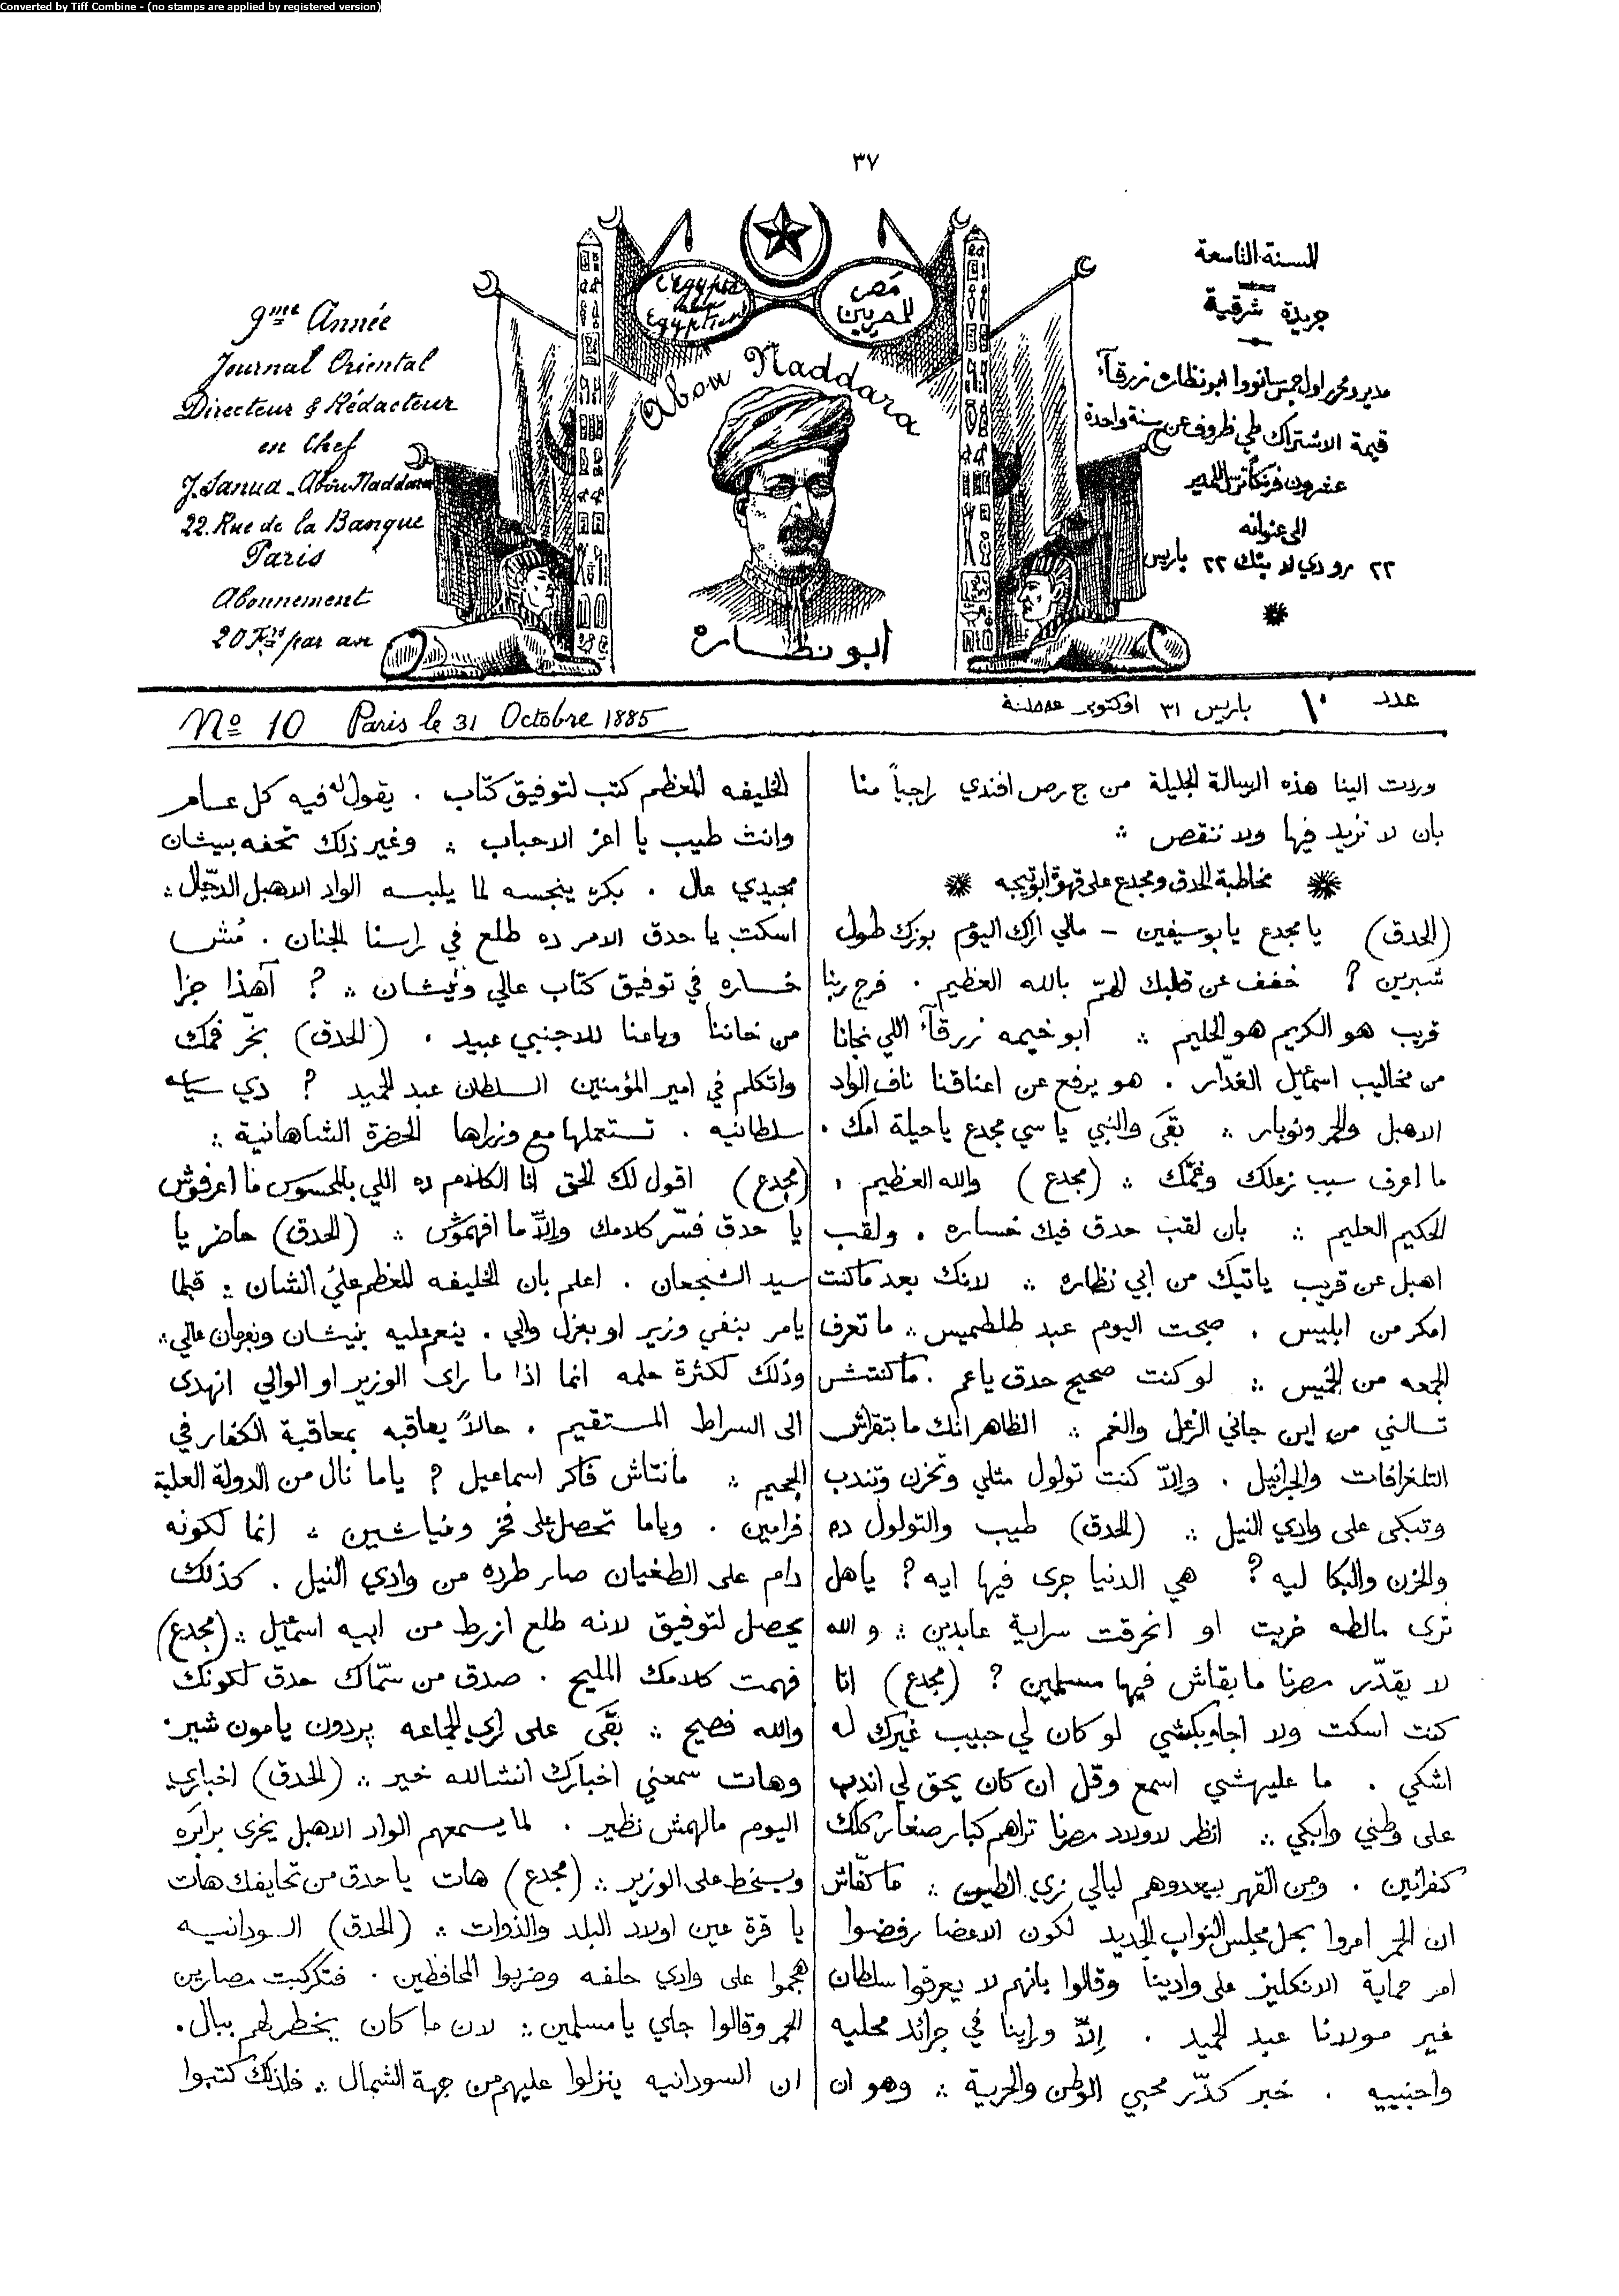 Converted by Tiff Combine - (no stamps are applied by registered version)
٣٧
السنة التاسعة
جريدة شرقية
مدير ومحرر اول جمس سانووا ابو نظارة زرقآء
قيمة الاشتراك طي ظروف عن سنة واحدة
عشرون فرنكا ترسل للمدير
الى عنوانه
٢٢ رو دي لا بنك ٢٢ باريس
مصر للمصريين
L'Egypte
Egyptiens
Abou Naddara
ابو نظاره
9me Année
Journal Oriental
Directeur & Rédacteur
en Chef
J. Sanua - Abou Naddara
22. Rue de la Banque
Paris
Abonnement
20 Frs par an
عدد ١٠ باريس ٣١ اوكتوبر سنة
No 10 Paris le 31 Octobre 1885
وردت الينا هذه الرسالة الجليلة من ج رص افندي راجياً منا
بان لا نزيد فيها ولا ننقص ∴
مخاطبة الحدق ومجدع على قهوة ابو تيجه
(الحدق) يا مجدع يا بوسيفين - مالي اراك اليوم بوزك طول
شبرين ? خفف عن قلبك الهمّ بالله العظيم . فرج ربنا
قريب هو الكريم هو الحليم ∴ ابو خيمه زرقآء اللي نجانا
من مخاليب اسمٰعيل الغدّار . هو يرفع عن اعناقنا ناف الواد
الاهبل والحمر ونوبار ∴ بقى والنبي يا سي مجدع يا حيلة امك .
ما اعرف سبب زعلك وغمّك ∴ (مجدع) والله العظيم .
الحكيم العليم ∴ بان لقب حدق فيك خساره . ولقب
اهبل عن قريب ياتيك من ابي نظاره ∴ لانك بعد ما كنت
امكر من ابليس . صبحت اليوم عبد طلطميس ∴ ما تعرف
الجمعه من الخميس ∴ لو كنت صحيح حدق يا عم . ما كنتش
تسالني من اين جاني الزعل والغم ∴ الظاهر انك ما بتقراش
التلغرافات والجرانيل . وإلاّ كنت تولول مثلي وتحزن وتندب
وتبكي على وادي النيل ∴ (الحدق) طيب والتولول ده
والحزن والبكا ليه ? هي الدنيا جرى فيها ايه ? ياهل
ترى مالطه خربت او انحرقت سراية عابدين ∴ و الله
لا يقدّر مصرنا ما بقاش فيها مسلمين ? (مجدع) انا
كنت اسكت ولا اجاوبكشي لو كان لي حبيب غيرك له
اشكي . ما عليهشي اسمع وقل ان كان يحق لي اندب
على وطني وابكي ∴ انظر لاولاد مصرنا تراهم كبار صغار كلك
كفرانين . ومن القهر بيعدوهم ليالي زي الطين ∴ ما كفّاش
ان الحمر امروا بحل مجلس النواب الجديد لكون الاعضا رفضوا
امر حماية الانكليز على وادينا وقالوا بانهم لا يعرفوا سلطان
غير مولانا عبد الحميد . إلاّ وراينا في جرائد محليه
واجنبيه . خبر كدّر محبي الوطن والحرية ∴ وهو ان
الخليفه المعظم كتب لتوفيق كتاب . يقول له فيه كل عام
وانت طيب يا اعز الاحباب ∴ وغير ذلك تحفه بنيشان
مجيدي عال . بكره ينجسه لما يلبسه الواد الاهبل الدجّال ∴
اسكت يا حدق الامر ده طلع في راسنا الجنان . مُش
خساره في توفيق كتاب عالي ونيشان ∴ ? آهذا جزا
من خاننا وباعنا للاجنبي عبيد . (الحدق) بخّر فمك
واتكلم في امير المؤمنين السلطان عبد الحميد ? دي سياسه
سلطانيه . تستعملها مع وزراها الحضرة الشاهانية ∴
(مجدع) اقول لك الحق انا الكلام ده اللي بالمحسوس ما اعرفوش
يا حدق فسّر كلامك وإلاّ ما افهموش ∴ (الحدق) حاضر يا
سيد الشجعان . اعلم بان الخليفه المعظم عليّ الشان ∴ قبلما
يامر بنفي وزير او بعزل والي . ينعم عليه بنيشان وبفرمان عالي ∴
وذلك لكثرة حلمه انما اذا ما راى الوزير او الوالي انهدى
الى السراط المستقيم . حالاً يعاقبه بمعاقبة الكفار في
الجحيم ∴ مانتاش فاكر اسماعيل ? ياما نال من الدولة العلية
فرامين . وياما تحصل على فخر ونياشين ∴ انما لكونه
دام على الطغيان صار طرده من وادي النيل . كذلك
يحصل لتوفيق لانه طلع ازرط من ابيه اسمٰعيل ∴ (مجدع)
فهمت كلامك المليح . صدق من سمّاك حدق لكونك
والله فصيح ∴ بقى على راي الجماعه پردون يا مون شير .
وهات سمعني اخبارك انشالله خير ∴ (الحدق) اخباري
اليوم مالهمش نظير . لما يسمعهم الواد الاهبل يخرى برابره
ويسخط على الوزير ∴ (مجدع) هات يا حدق من تحايفك هات
يا قرة عين اولاد البلد والذوات ∴ (الحدق) السودانيه
هجموا على وادي حلفه وضربوا المحافظين . فتكركبت مصارين
الحمر وقالوا جاي يا مسلمين ∴ لان ما كان يخطر لهم ببال .
ان السودانيه ينزلوا عليهم من جهة الشمال ∴ فلذلك كتبوا